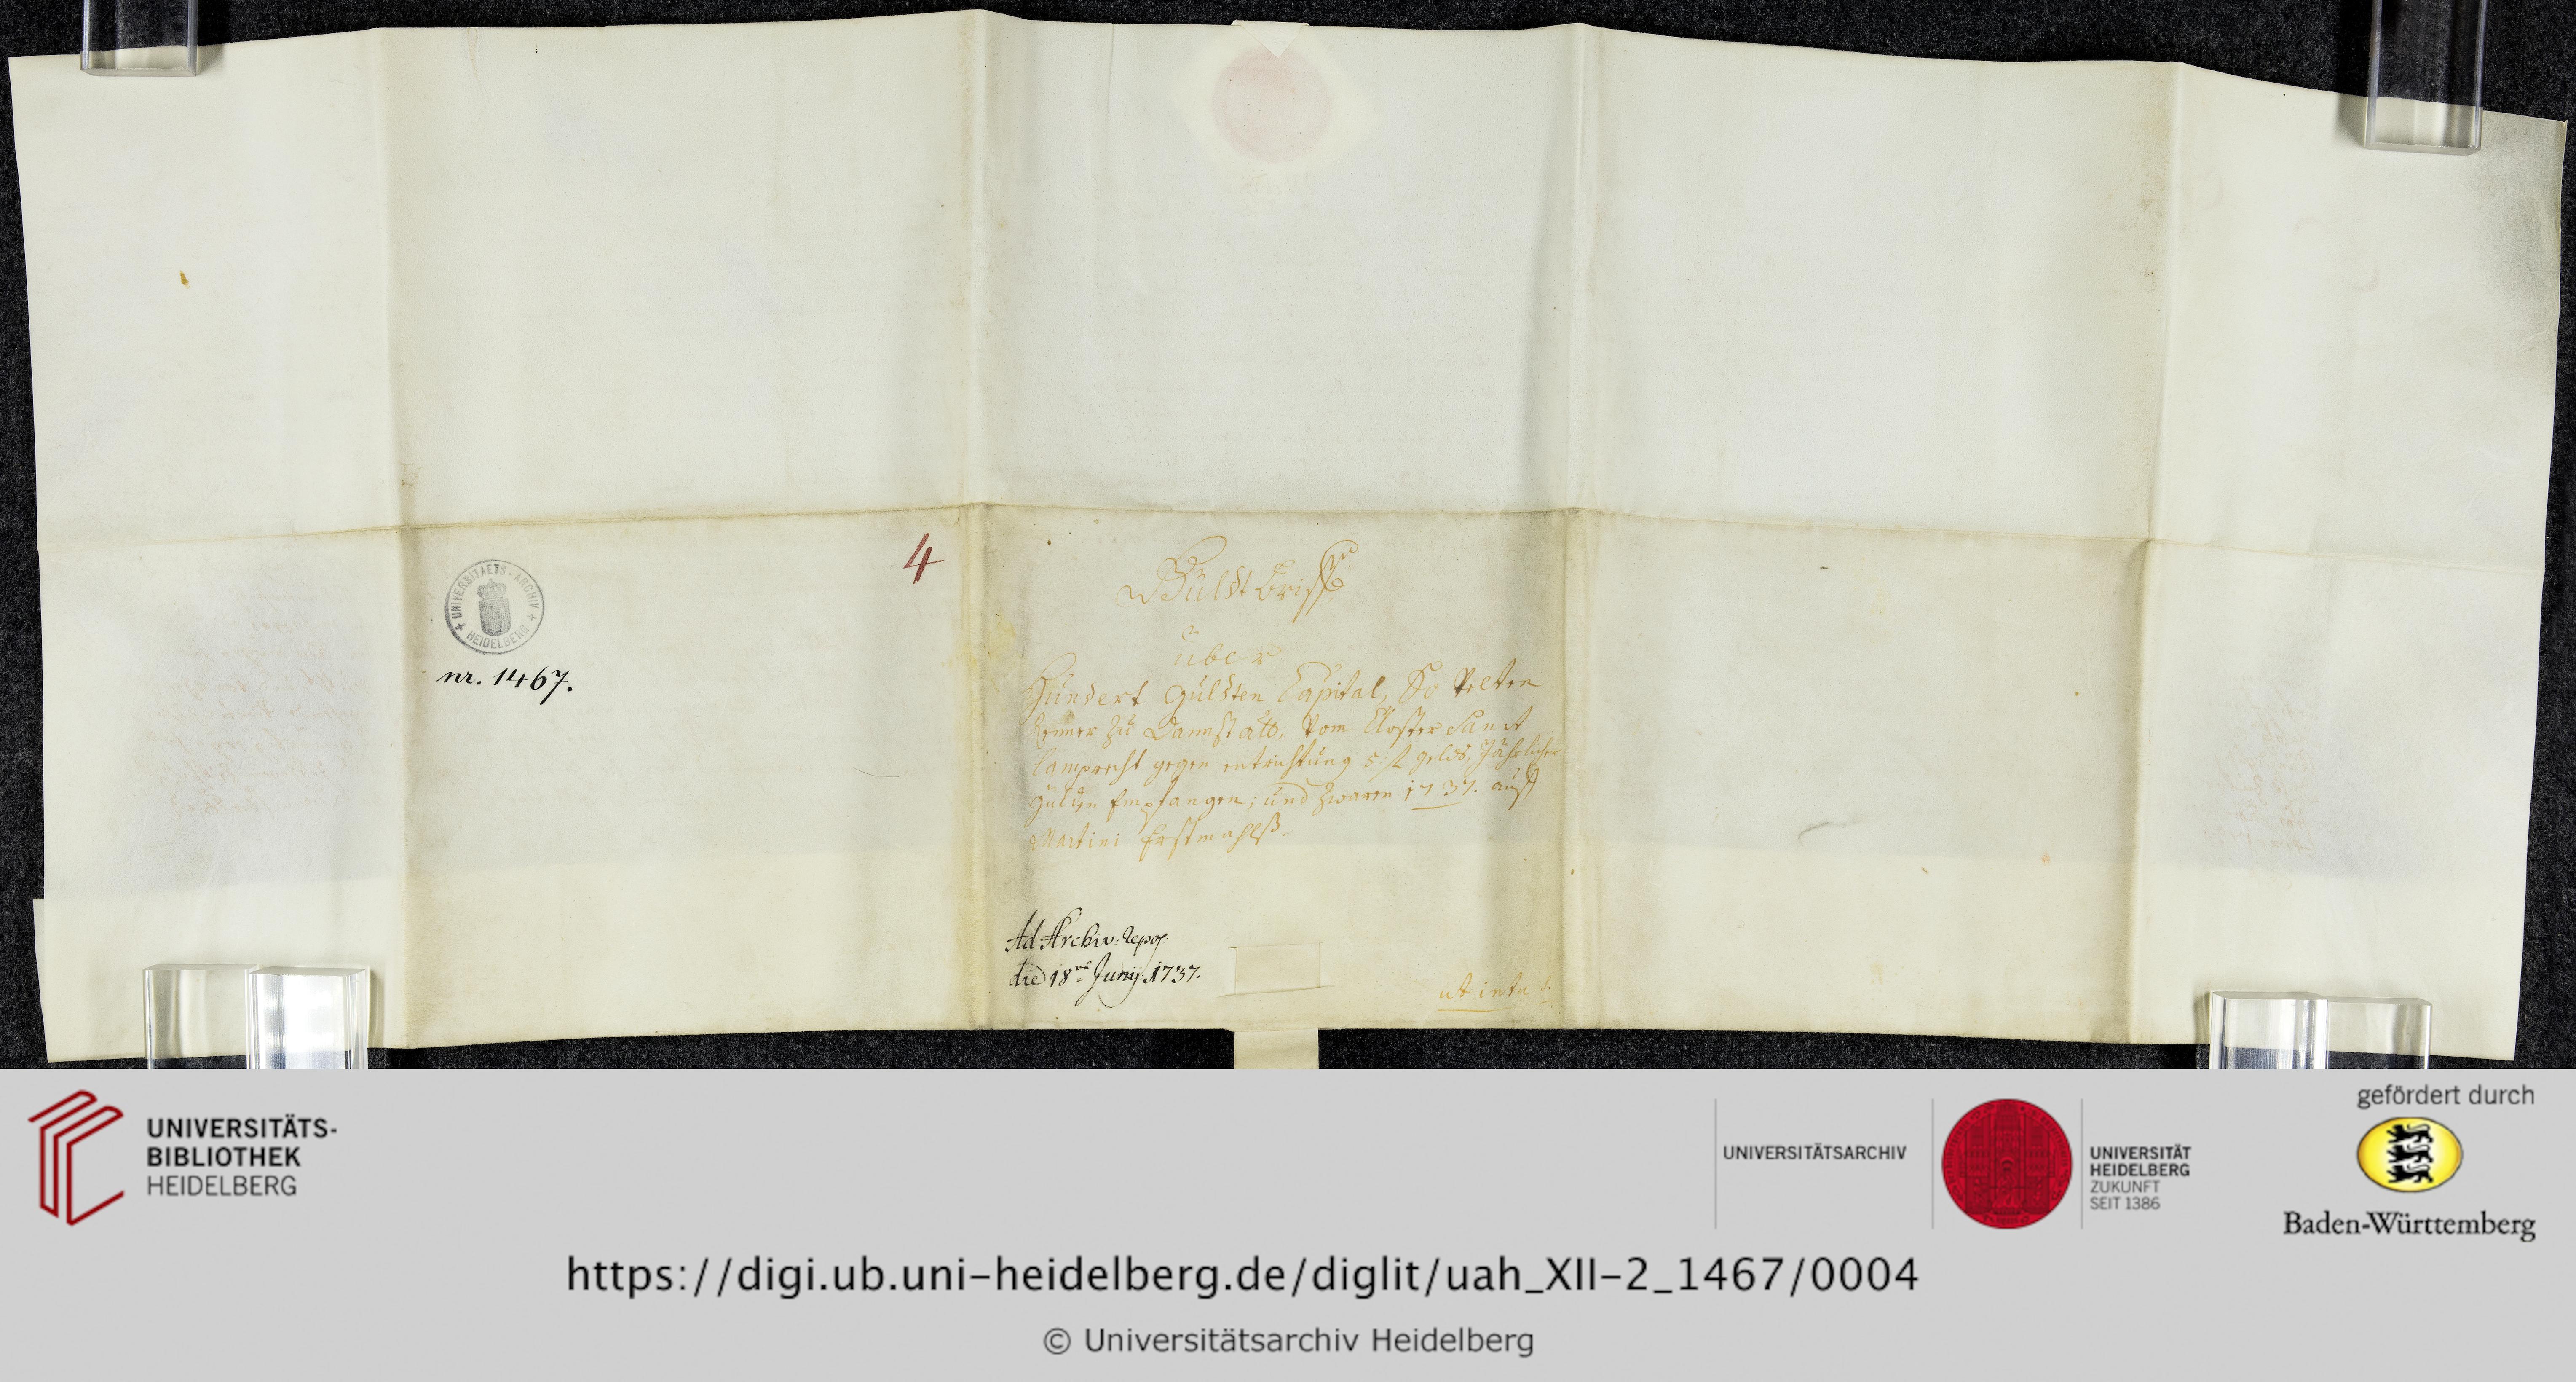 4
UNIVERSITAETS-ARCHIV
HEIDELBERG
nr. 1467.
Güldt brieff
über
Hundert gulden Capital, So Velten
zu Dannstatt, Vom Closter Sanct
Lamprecht gegen entrichtung 5 fl gelds, Jährlicher
gulden Empfangen; und zwaren 1737. auff
Martini Erstmahlß.
Ad Archiv: repos.
die 18va Junij 1737.
ut intus.
UNIVERSITÄTS-
BIBLIOTHEK
HEIDELBERG
UNIVERSITÄTSARCHIV
UNIVERSITÄT
HEIDELBERG
ZUKUNFT
SEIT 1386
gefördert durch
Baden-Württemberg
https://digi.ub.uni-heidelberg.de/diglit/uah_XII-2_1467/0004
© Universitätsarchiv Heidelberg